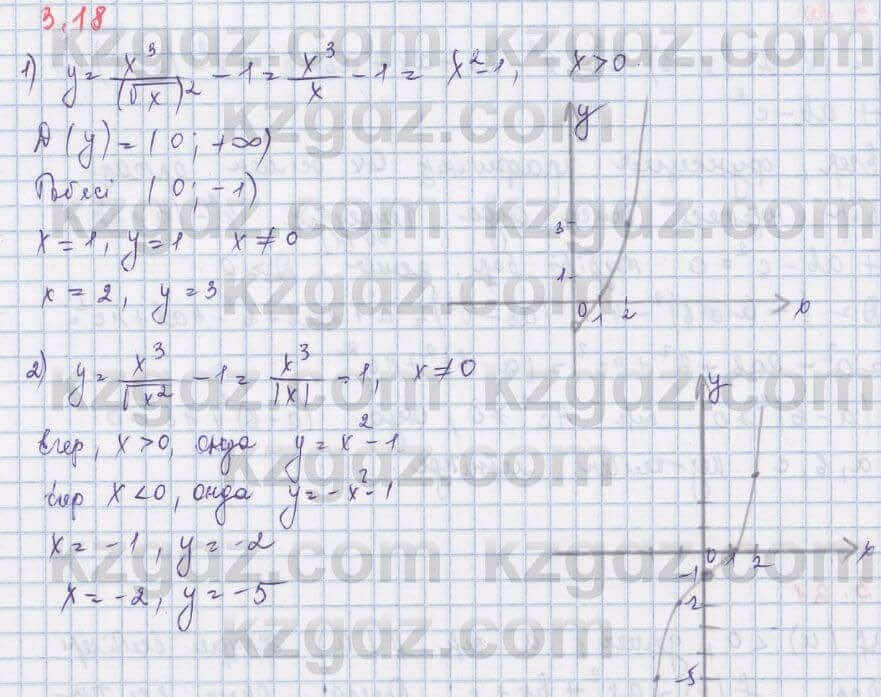 3.18
1) y = x³/(√x)² - 1 = x³/x - 1 = x² - 1, x > 0
D(y) = (0; +∞)
Төбесі (0; -1)
x = 1, y = 1 x ≠ 0
x = 2, y = 3
y
3
1
0 1 2 x
2) y = x³/√x² - 1 = x³/|x| - 1, x ≠ 0
Егер, x > 0, онда y = x² - 1
Егер x < 0, онда y = -x² - 1
x = -1, y = -2
x = -2, y = -5
y
0 1 2 x
-1
-2
-5
kzgdz.com